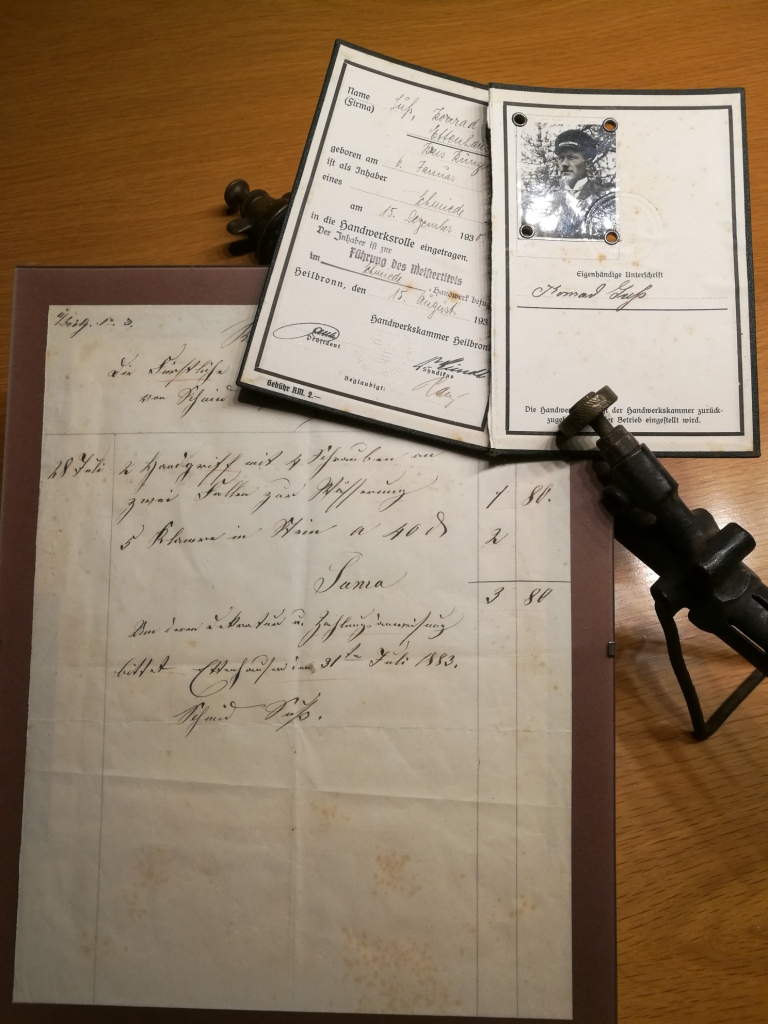 Name
(Firma)
Süß, Konrad
geboren am
6. Januar
ist als Inhaber
eines
Schmiede
am 15. Dezember 193
in die Handwerksrolle eingetragen.
Der Inhaber ist zur
Führung des Meistertitels
im Schmiede - Handwerk
Heilbronn, den 15. August 193
Handwerkskammer Heilbronn
Präsident
Syndikus
Beglaubigt:
Gebühr RM. 2.—
Eigenhändige Unterschrift
Konrad Süß
Die Handw der Handwerkskammer zurück-
zuge Betrieb eingestellt wird.
Die Fürstliche
von Schmid
28 Juli 2 Handgriff mit 4 Schrauben an
zwei Fallen zur Wässerung 1 80.
5 Klamre in Stein a 40 d 2
Suma 3 80
Um deren Dekretur u. Zahlungsanweisung
bittet Ettenhausen den 31ten Juli 1883.
Schmid Süß.